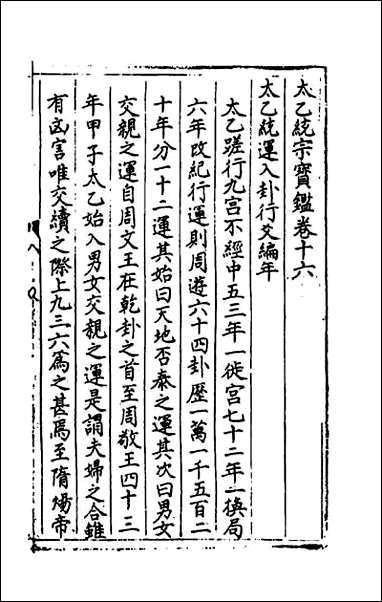 太乙統宗寳鑑卷十六
太乙統運入卦行爻編年
太乙蹉行九宮不經中五三年一徙宮七十二年一換局
六年改紀行運則周遊六十四卦歷一萬一千五百二
十年分一十二運其始曰天地否泰之運其次曰男女
交親之運自周文王在乾卦之首至周敬王四十三
年甲子太乙始入男女交親之運是謂夫婦之合雖
有凶害唯交續之際上九三六為之甚焉至隋煬帝